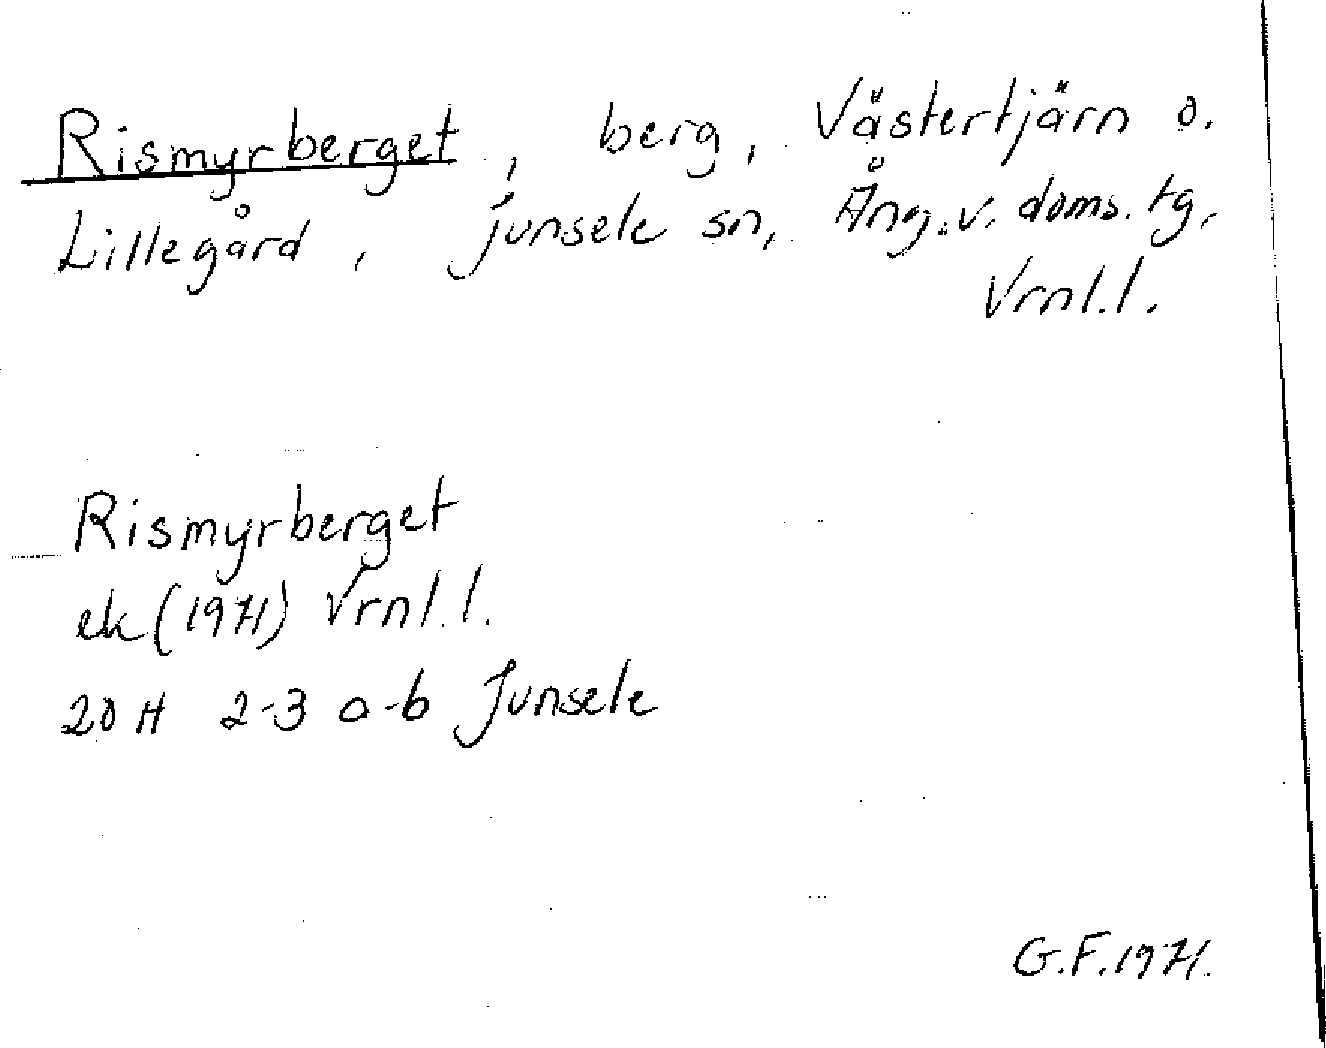 Rismyrberget, berg, Västertjärn o.
Lillegård, Junsele sn, Ång.v. doms. tg,
Vrnl.l.
Rismyrberget
ek (1971) Vrnl.l.
20 H 2-3 a-b Junsele
G.F. 1971.